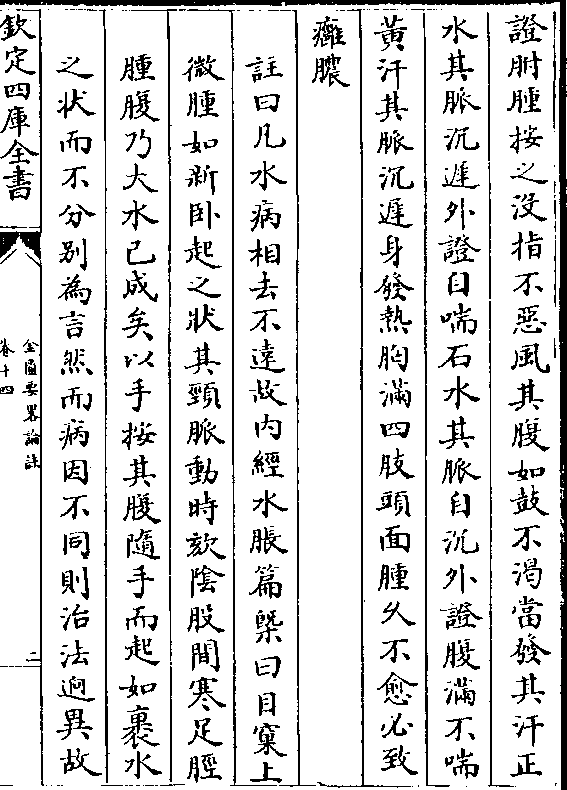 證胕腫按之沒指不惡風其腹如鼓不渴當發其汗正
水其脈沉遲外證自喘石水其脈自沉外證腹滿不喘
黃汗其脈沉遲身發熱胸滿四肢頭面腫久不愈必致
癰膿
註曰凡水病相去不逺故内經水脹篇槩曰目窠上
微腫如新卧起之狀其頸脈動時欬陰股間寒足脛
腫腹乃大水已成矣以手按其腹隨手而起如裹水
之狀而不分别為言然而病因不同則治法逈異故
欽定四庫全書
金匱要畧論註
卷十四
二